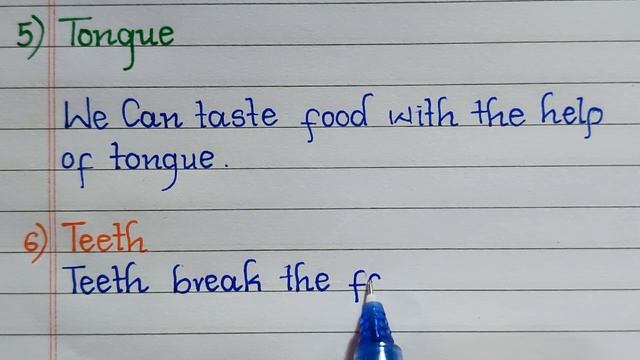 5) Tongue
We Can taste food with the help
of tongue.
6) Teeth
Teeth break the